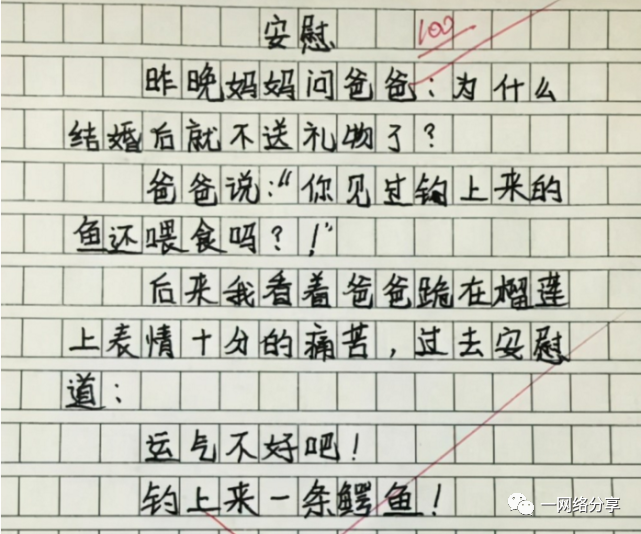 安慰
100
昨晚妈妈问爸爸：为什么
结婚后就不送礼物了？
爸爸说：“你见过钩上来的
鱼还喂食吗？！”
后来我看着爸爸跪在榴莲
上表情十分的痛苦，过去安慰
道：
运气不好吧！
钓上来一条鳄鱼！
一网络分享